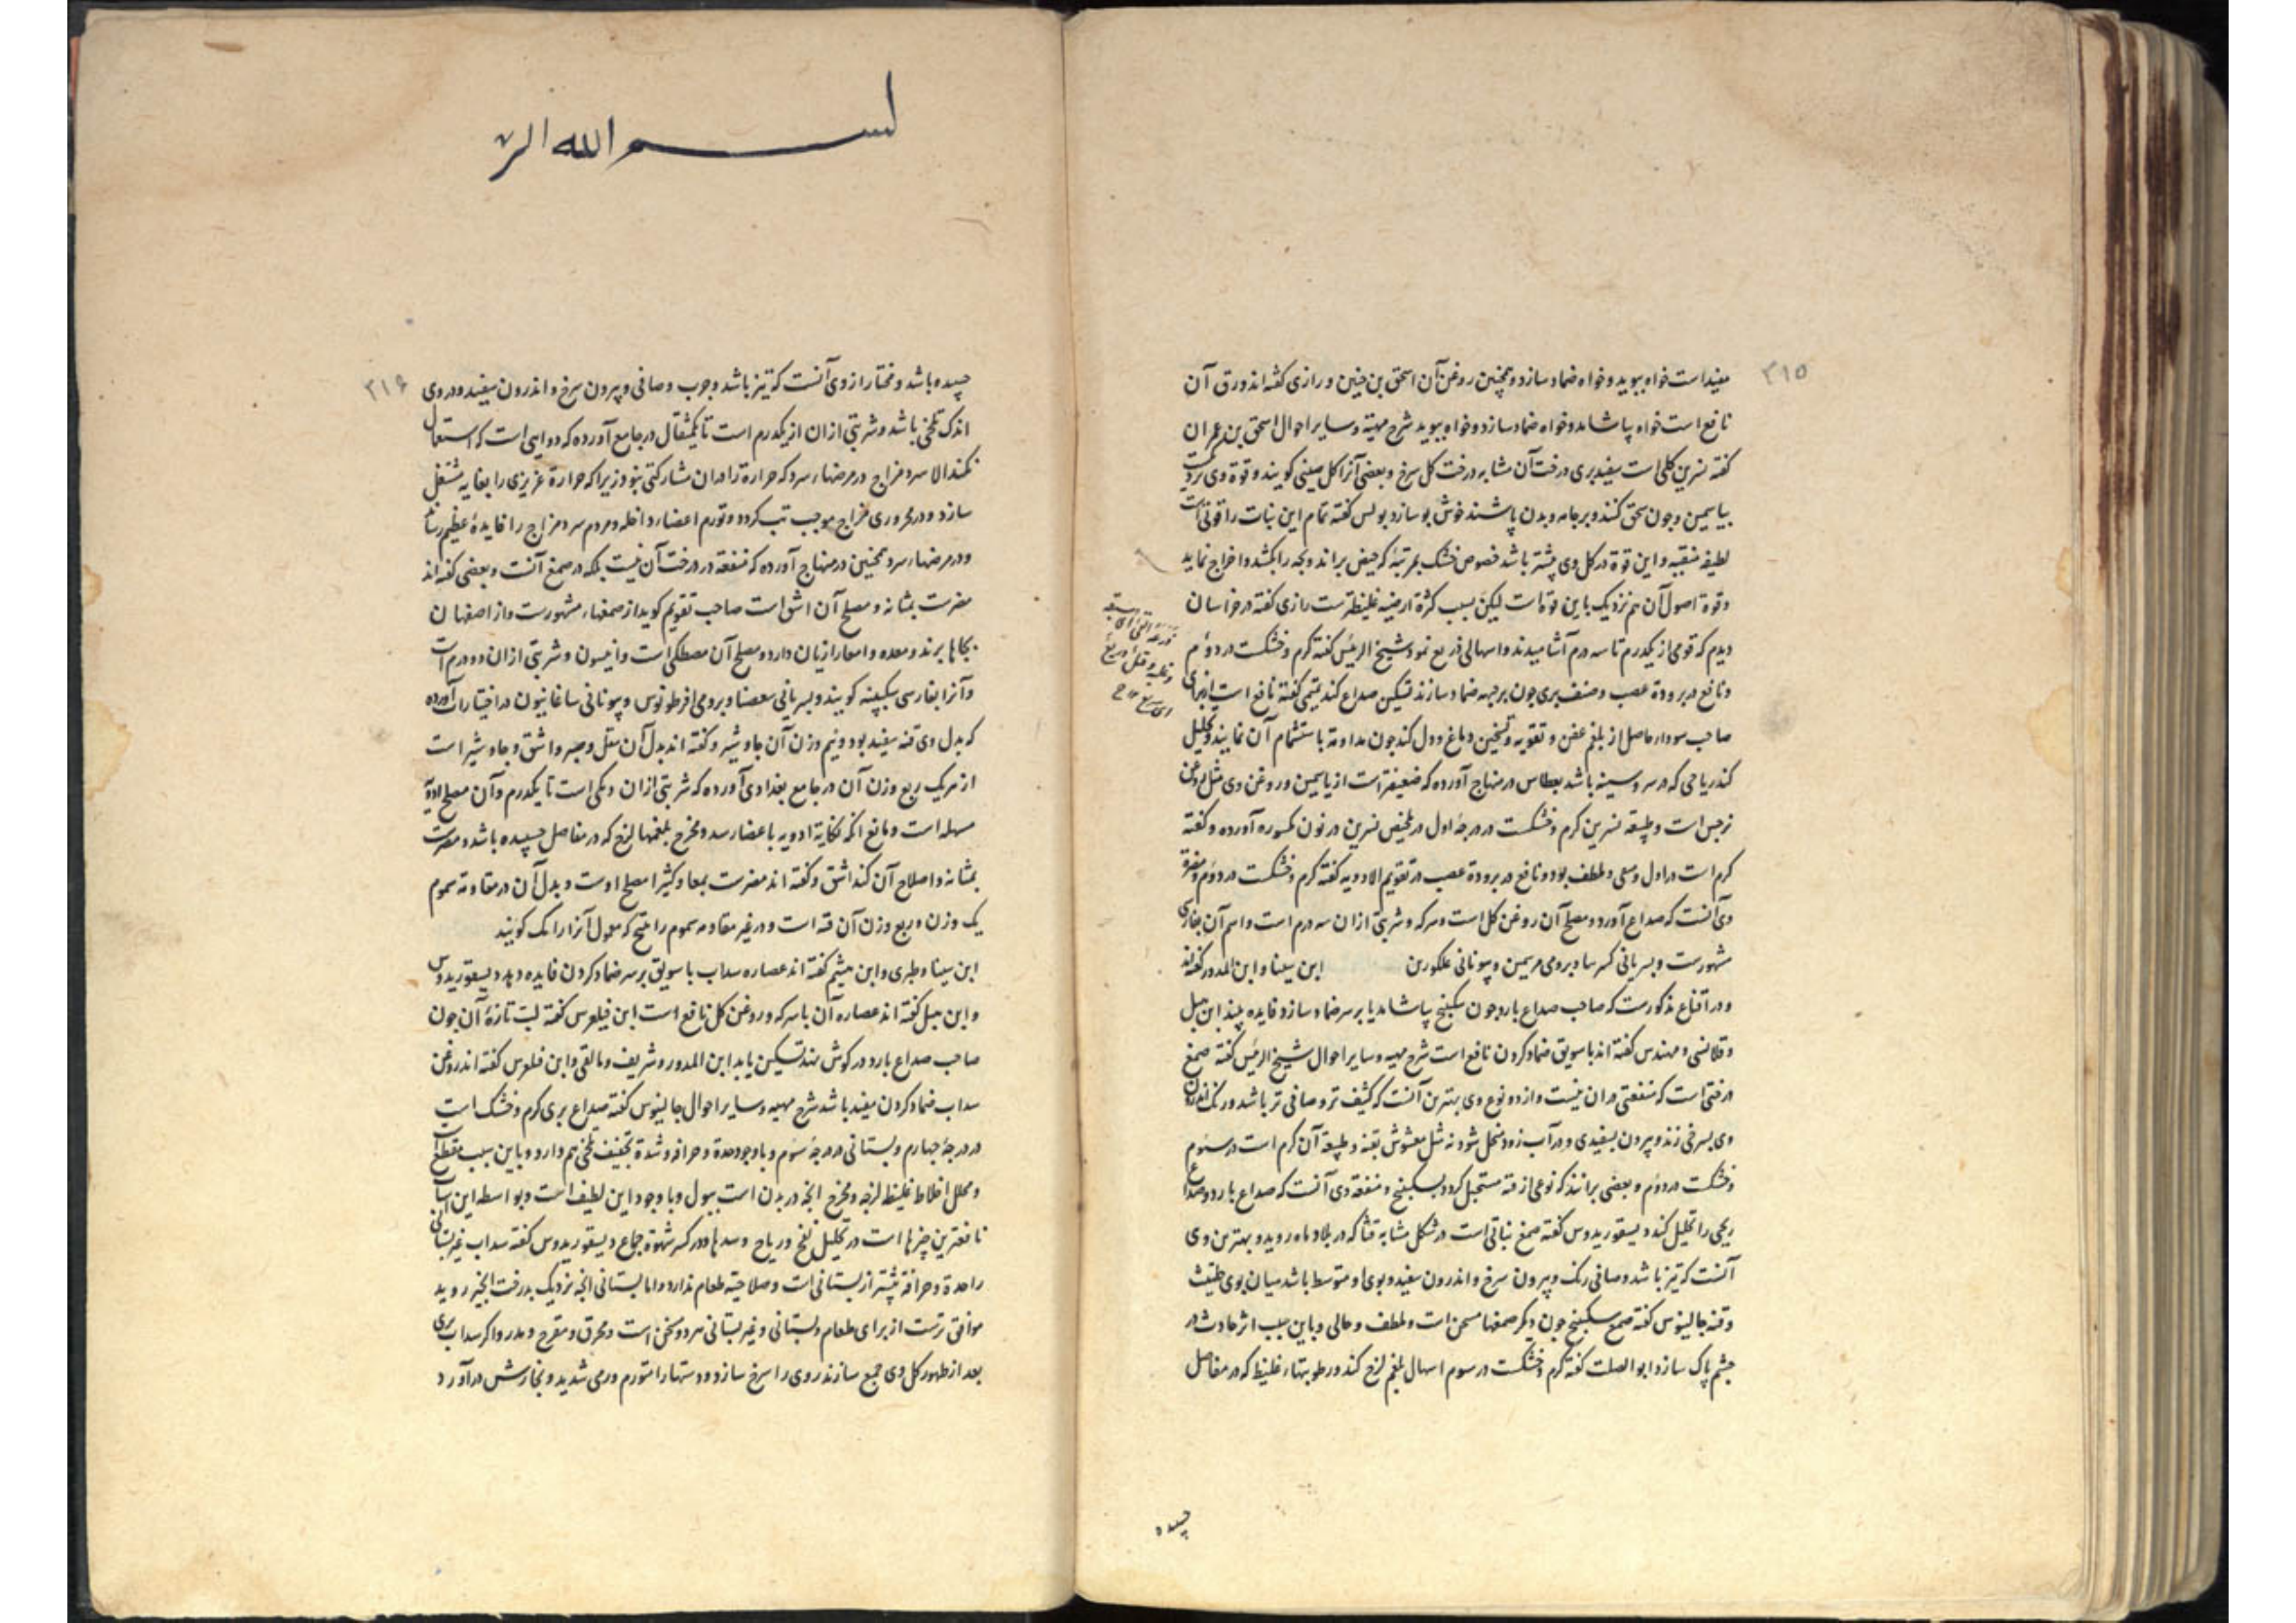 ۳۱۵
مفیداست خواه ببوید و خواه ضماد سازد و همچنین روغن آن اسحق بن حنین و رازی گفته اند ورق آن
نافع است خواه بپاشاند و خواه ضماد سازد و خواه ببوید شرح مهیته و سایر احوال اسحق بن عمران
گفته نسرین کلی است سفید بری درخت آن مشابه درخت کل سرخ و بعضی آنرا کل صینی کویند و قوة وی
بیاسمین و چون سحق کنند و بر جامه و بدن پاشند خوش بو سازد بولس گفته تمام این نبات را قوتی است
لطیفه منقیه و این قوة در کل وی بیشتر باشد خصوص خشک بمرتبۀ که حیض براند و بچه را بکشد و اخراج نماید
و قوة اصول آن هم نزدیک باین قوة است لیکن بسبب کثرة ارضیه غلیظترست رازی گفته در خراسان
دیدم که قومی از یکدرم تا سه درم آشامیدند و اسهالی ذریع نمود شیخ الرئیس گفته کرم و خشکست در دوم
و نافع در برودة عصب و صنف بری چون بر جبهه ضماد سازند تسکین صداع کند تمیمی گفته نافع است
صاحب سودا حاصل از بلغم عفن و تقویه و تسخین دماغ و دل کند چون مداومة باستشمام آن نمایند و تحلیل
کند ریاحی که در سر و سینه باشد بعطاس در منهاج آورده که ضعیفتر است از یاسمین و روغن وی مثل روغن
نرجس است و طبیعة نسرین کرم و خشکست در درجۀ اول در ملخص نسرین در نون مکسوره آورده و گفته
کرم است در اول و ملطف بود و نافع در برودة عصب در تقویم الادویه گفته کرم و خشکست در دوم و مضرة
وی آنست که صداع آورد و مصلح آن روغن کل است و سرکه و شربتی از ان سه درم است و اسم آن بفارسی
مشهورست و بسریانی و برومی و یونانی ابن سینا و ابن المدور گفته اند
و در اقناع مذکورست که صاحب صداع بارد چون سکبینج بپاشاند یا بر سر ضماد سازد فایده بیند ابن
و قلانسی و مهندس گفته اند با سویق ضماد کردن نافع است شرح مهیه و سایر احوال شیخ الرئیس گفته صمغ
درختی است که منفعتی دران نیست و از دو نوع وی بهترین آنست که کثیف تر و صافی تر باشد و رنک اندرون
وی بسرخی زند و بیرون بسفیدی و در آب زود منحل شود نه مثل مغشوش بقنه و طبیعة آن کرم است در سوم
و خشکست در دوم و بعضی برانند که نوعی از قنه مستحیل کردد بسکبینج و منفعة وی آنست که صداع بارد و صداع
ریحی را تحلیل کند دیسقوریدوس گفته صمغ نباتی است در شکل مشابه قثا که در بلاد ماه روید و بهترین وی
آنست که تیز باشد و صافی رنک و بیرون سرخ و اندرون سفید و بوی او متوسط باشد میان بوی حلتیت
و قنه جالینوس گفته صمغ سکبینج چون دیکر صمغها مسخن است و ملطف و جالی و باین سبب اثر حادث در
چشم پاک سازد ابو الصلت گفته کرم و خشکست در سوم اسهال بلغم لزج کند و رطوبتهاء غلیظ که در مفاصل
چسپیده
بسم الله الر
۳۱۶
چسپیده باشد و مختار از وی آنست که تیز باشد و چرب و صافی و بیرون سرخ و اندرون سفید و در وی
اندک تلخی باشد و شربتی از ان از یکدرم است تا یکمثقال در جامع آورده که دوایی است که استعمال
نکنند الا سرد مزاج در مرضهاء سرد که حرارة را دران مشارکتی نبود زیرا که حرارة غریزی را بغایه مشتعل
سازد و در محروری مزاج موجب تب کردد و تورم اعضاء داخله و مردم سرد مزاج را فایدۀ عظیم رساند
و در مرضهاء سرد همچنین در منهاج آورده که منفعة در درخت آن نیست بلکه در صمغ آنست و بعضی گفته اند
مضرست بمثانه و مصلح آن اشق است صاحب تقویم کوید از صمغهاء مشهورست و از اصفهان
بجاها برند و معده و امعا را زیان دارد و مصلح آن مصطکی است و انیسون و شربتی از ان دو درم است
و آنرا بفارسی سکبینه کویند و بسریانی و برومی و یونانی ساغابیون در اختیارات آورده
که بدل وی قنه سفید بود و نیم وزن آن جاوشیر و گفته اند بدل آن مقل و صبر و اشق و جاوشیر است
از هر یک ربع وزن آن در جامع بغدادی آورده که شربتی از ان دمکی است تا یکدرم و آن مصلح ادویه
مسهله است و مانع آنکه نکایة ادویه باعضا رسد و مخرج بلغمها لزج که در مفاصل چسپیده باشد و مضرست
بمثانه و اصلاح آن کند اشق و گفته اند مضرست بمعا و کثیرا مصلح اوست و بدل آن در مقاومة سموم
یک وزن و ربع وزن آن قنه است و در غیر مقاومه سموم راتینج که معمول آنرا رانک کویند
ابن سینا و طبری و ابن میثم گفته اند عصاره سداب با سویق بر سر ضماد کردن فایده دهد دیسقوریدوس
و ابن هبل گفته اند عصاره آن با سرکه و روغن کل نافع است ابن فیلوس گفته لب تازۀ آن چون
صاحب صداع بارد در کوش نهد تسکین یابد ابن المدور و شریف و مالقی و ابن فیلوس گفته اند روغن
سداب ضماد کردن مفید باشد شرح مهیه و سایر احوال جالینوس گفته بری کرم و خشک است
در درجۀ چهارم و بستانی در درجۀ سوم و با وجود حدة و حرافة و شدة تجفیف تلخی هم دارد و باین سبب مقطع
و محلل اخلاط غلیظ لزجه و مخرج آنچه در بدن است ببول و با وجود این لطیف است و بواسطه این اسباب
نافعترین چیزها است در تحلیل نفخ و ریاح و سدها و در کسر شهوة جماع دیسقوریدوس گفته سداب غیر بستانی
را حدة و حرافة بیشتر از بستانی است و صلاحیة طعام ندارد و اما بستانی آنچه نزدیک بدرخت انجیر روید
موافق ترست از برای طعام و بستانی و غیر بستانی هر دو مسخن است و محرق و مقرح و مدر و اکر سداب بری
بعد از ظهور کل وی جمع سازند روی را سرخ سازد و دستها را متورم ورمی شدید و بخارش در آورد